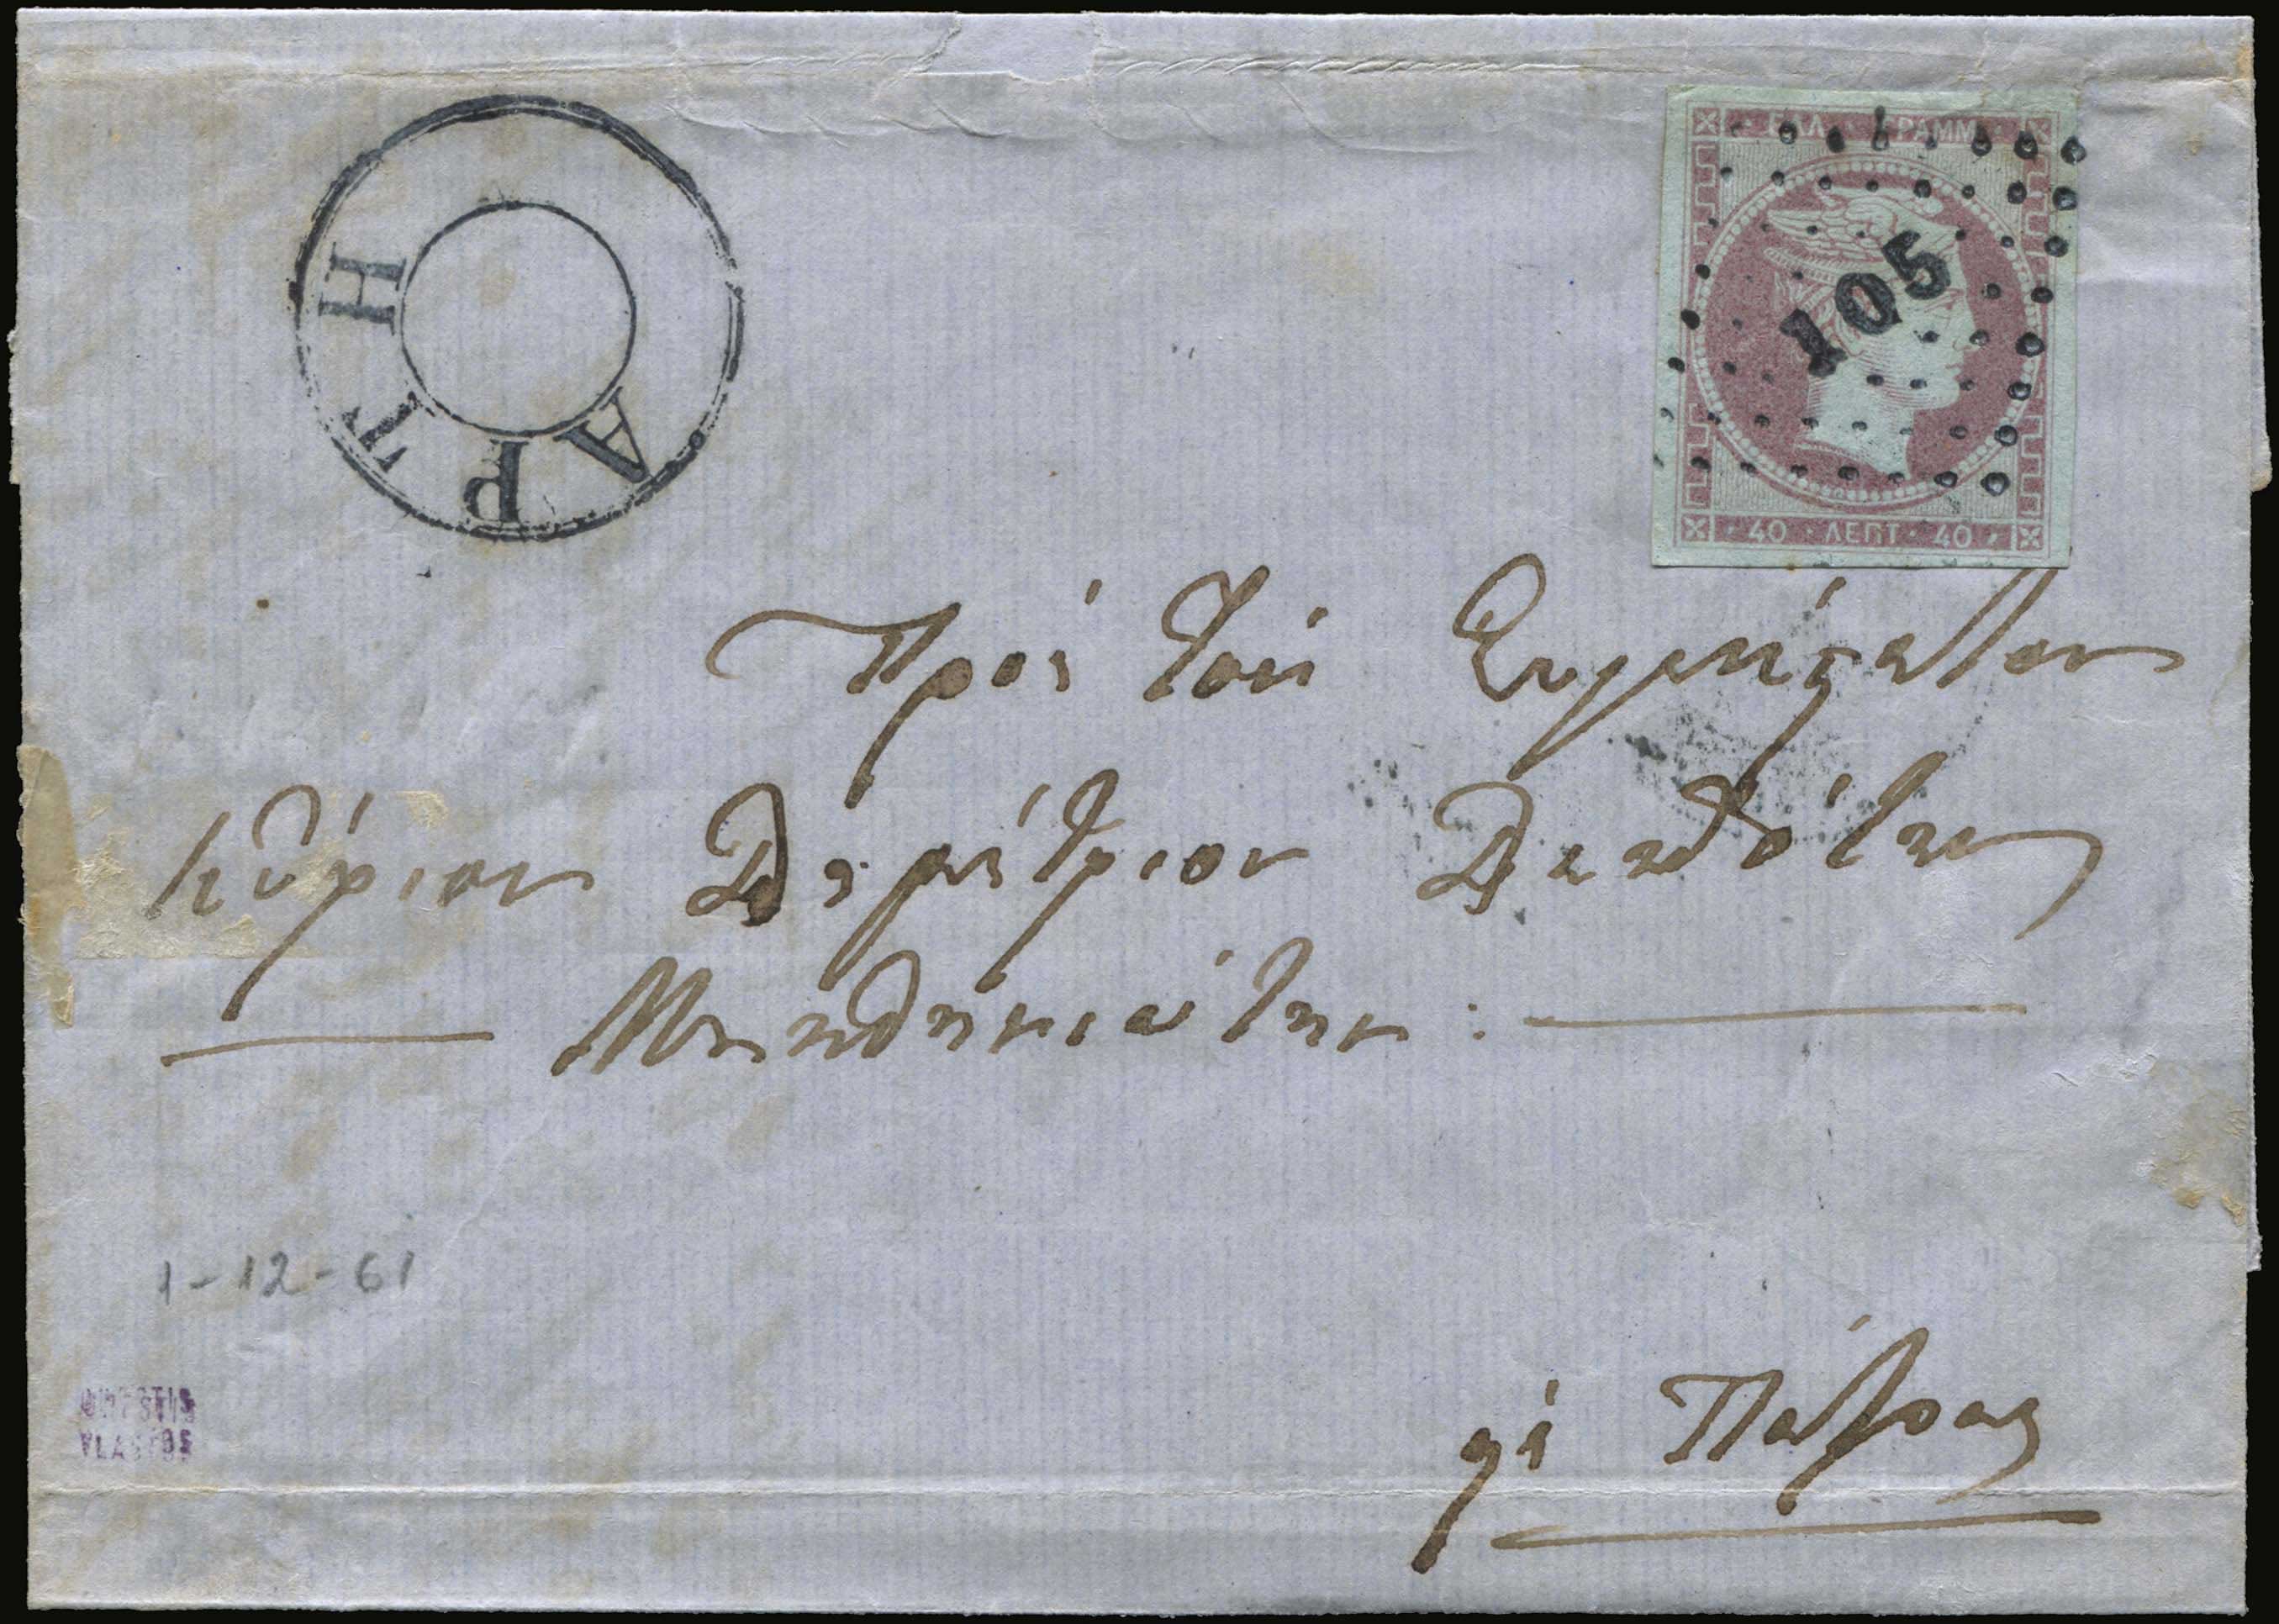 ΑΡΤΗ
ΕΛΛ ΓΡΑΜΜ
105
40 ΛΕΠΤ 40
Πρός τόν Ευγενέςατον
Κύριον Δημήτριον Δεσπότην
1-12-61
ORESTIS
VLASTOS
Πάτρας